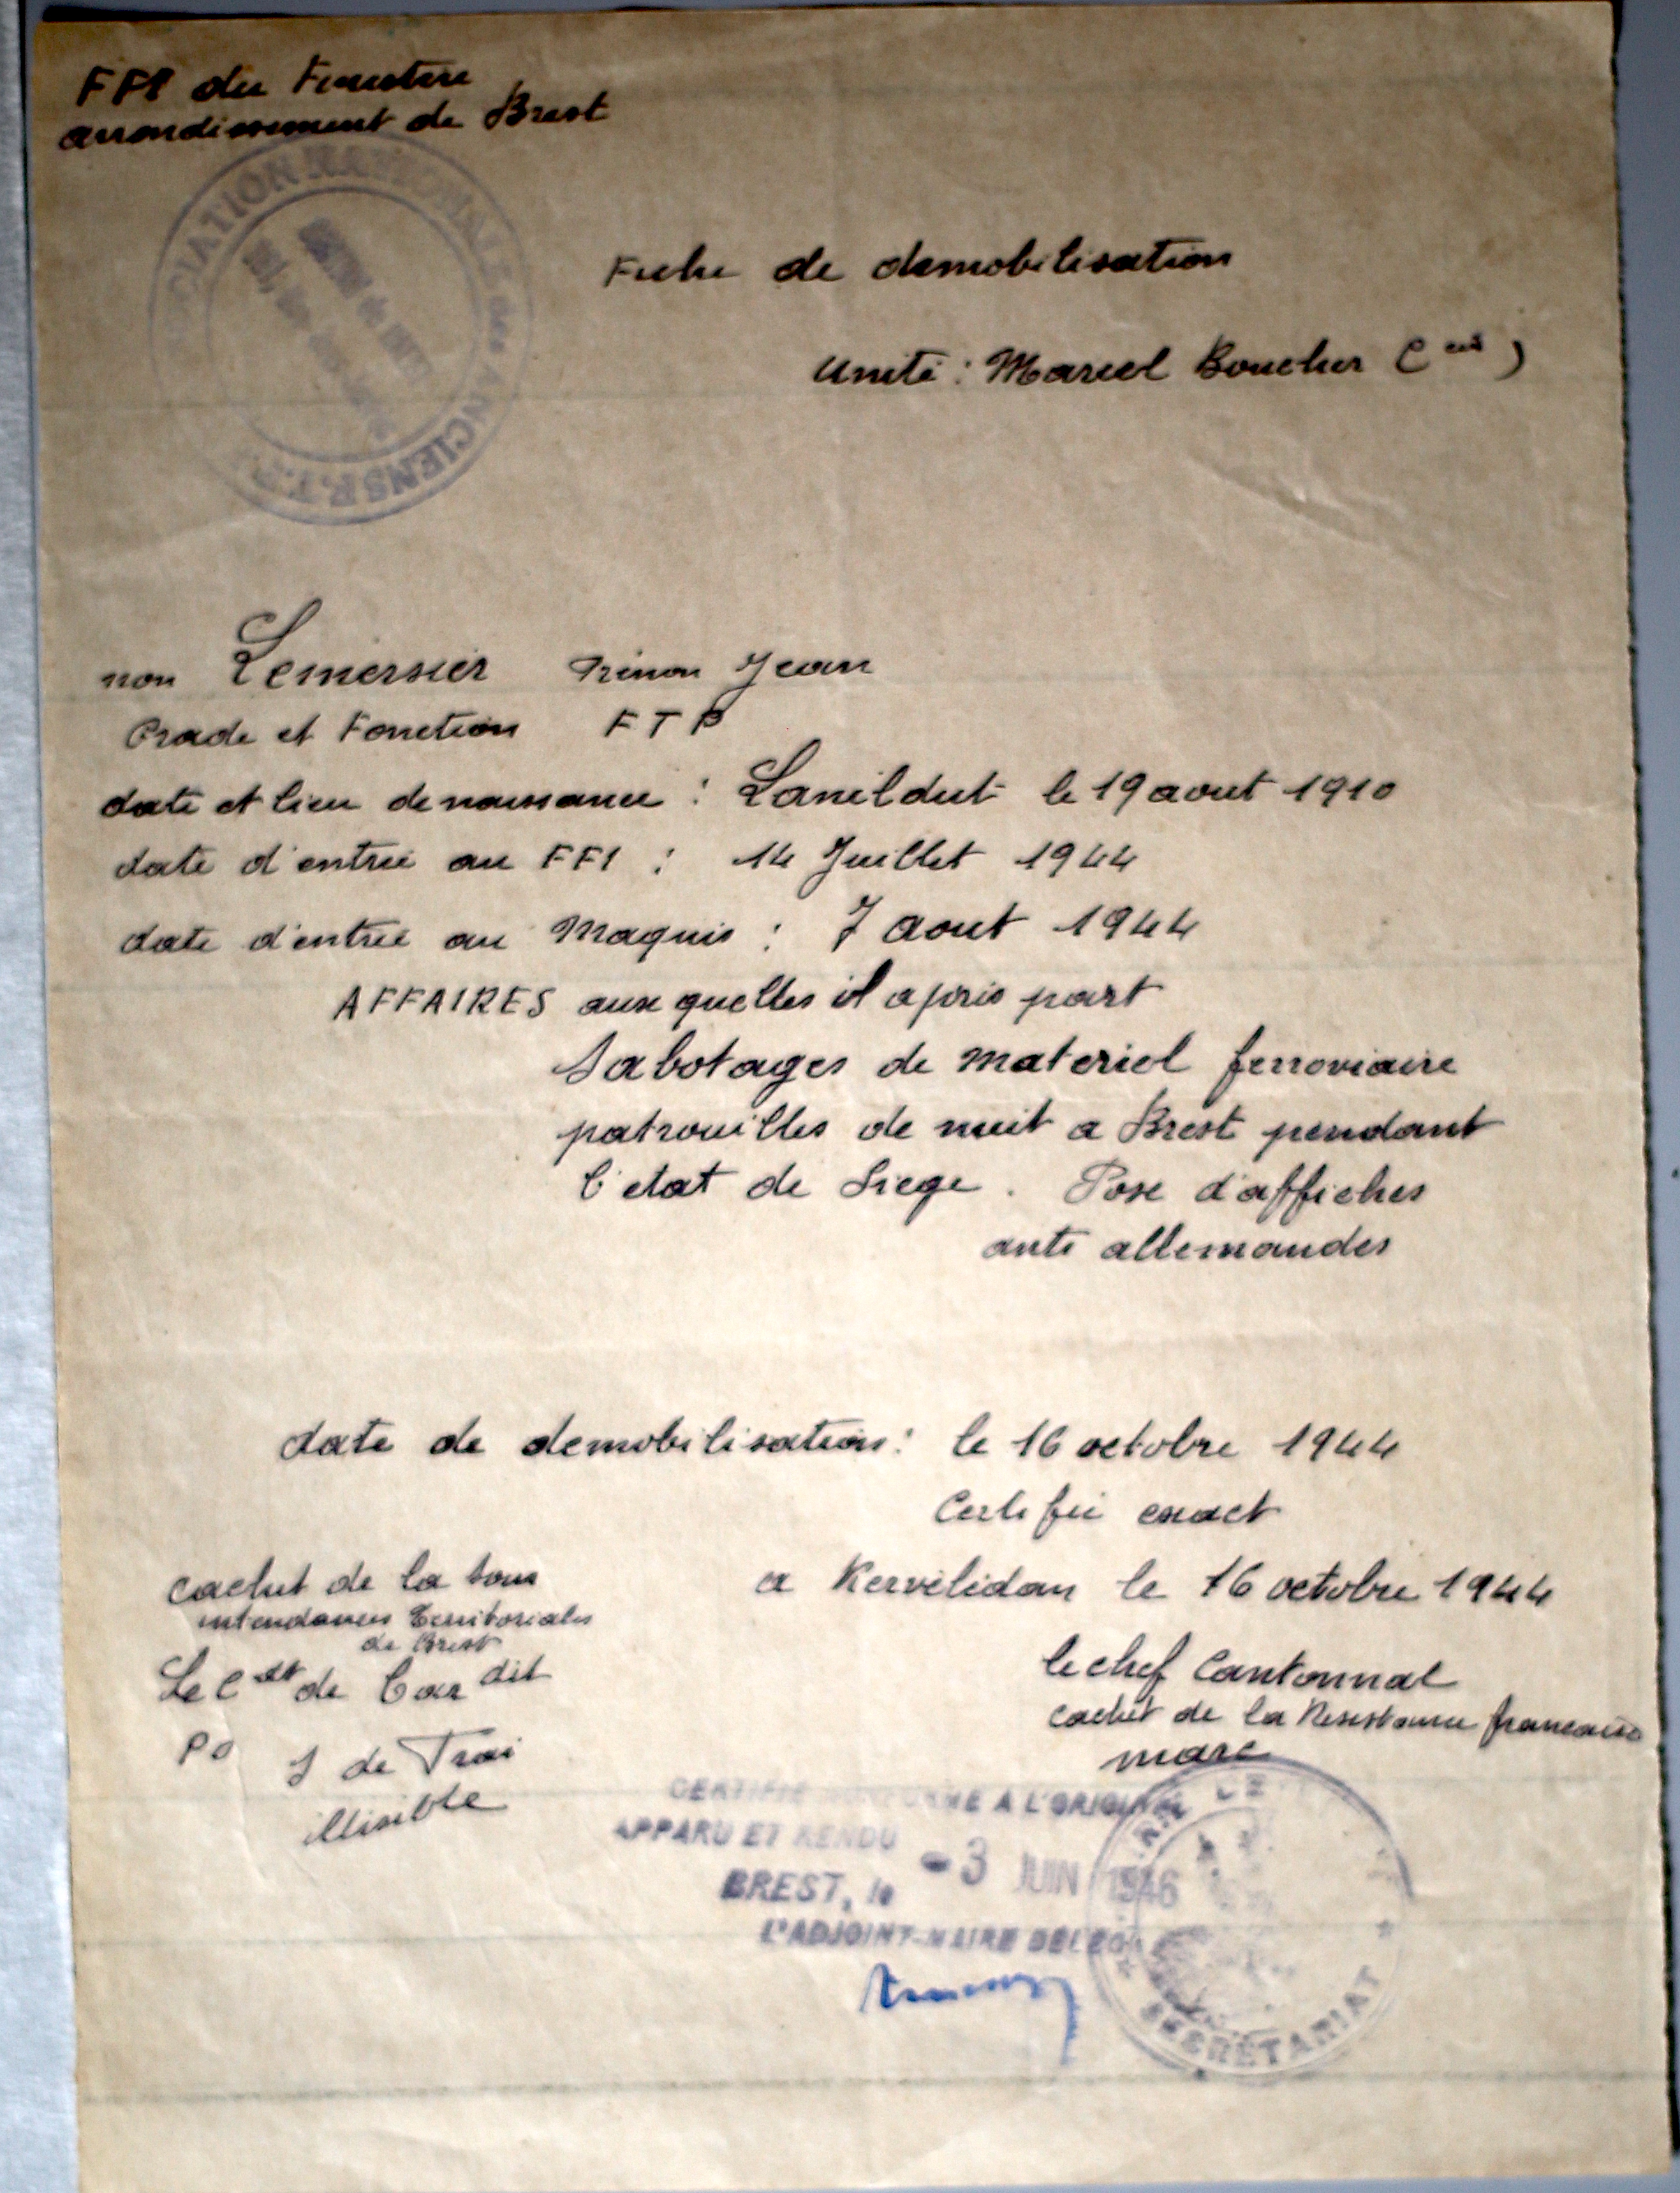 FFI du Finistere
arrondissement de Brest
ASSOCIATION NATIONALE des ANCIENS F.T.P.
Fiche de demobilisation
Unité : Marcel Boucher (Cie)
non Lemersier Prénon Jean
Grade et Fonction FTP
date et lieu de naissance : Lanildut le 19 aout 1910
date d'entrée au FFI : 14 Juillet 1944
date d'entrée au Maquis : 7 aout 1944
AFFAIRES aux quelles il a pris part
Sabotages de materiel ferroviaire
patrouilles de nuit a Brest pendant
l'etat de Siege. Pose d'affiches
anti allemandes
date de demobilisation : le 16 octobre 1944
Certifié exact
a Kervelidan le 16 octobre 1944
cachet de la sous
intendances territoriales
de Brest
Le Cdt de Car dit
PO J de Trai
illisible
le chef Cantonnal
cachet de la Resistance francaise
marc
CERTIFIÉ CONFORME A L'ORIGINAL
APPARU ET RENDU
BREST, le -3 JUIN 1946
L'ADJOINT-MAIRE DELEGUE
SECRETARIAT